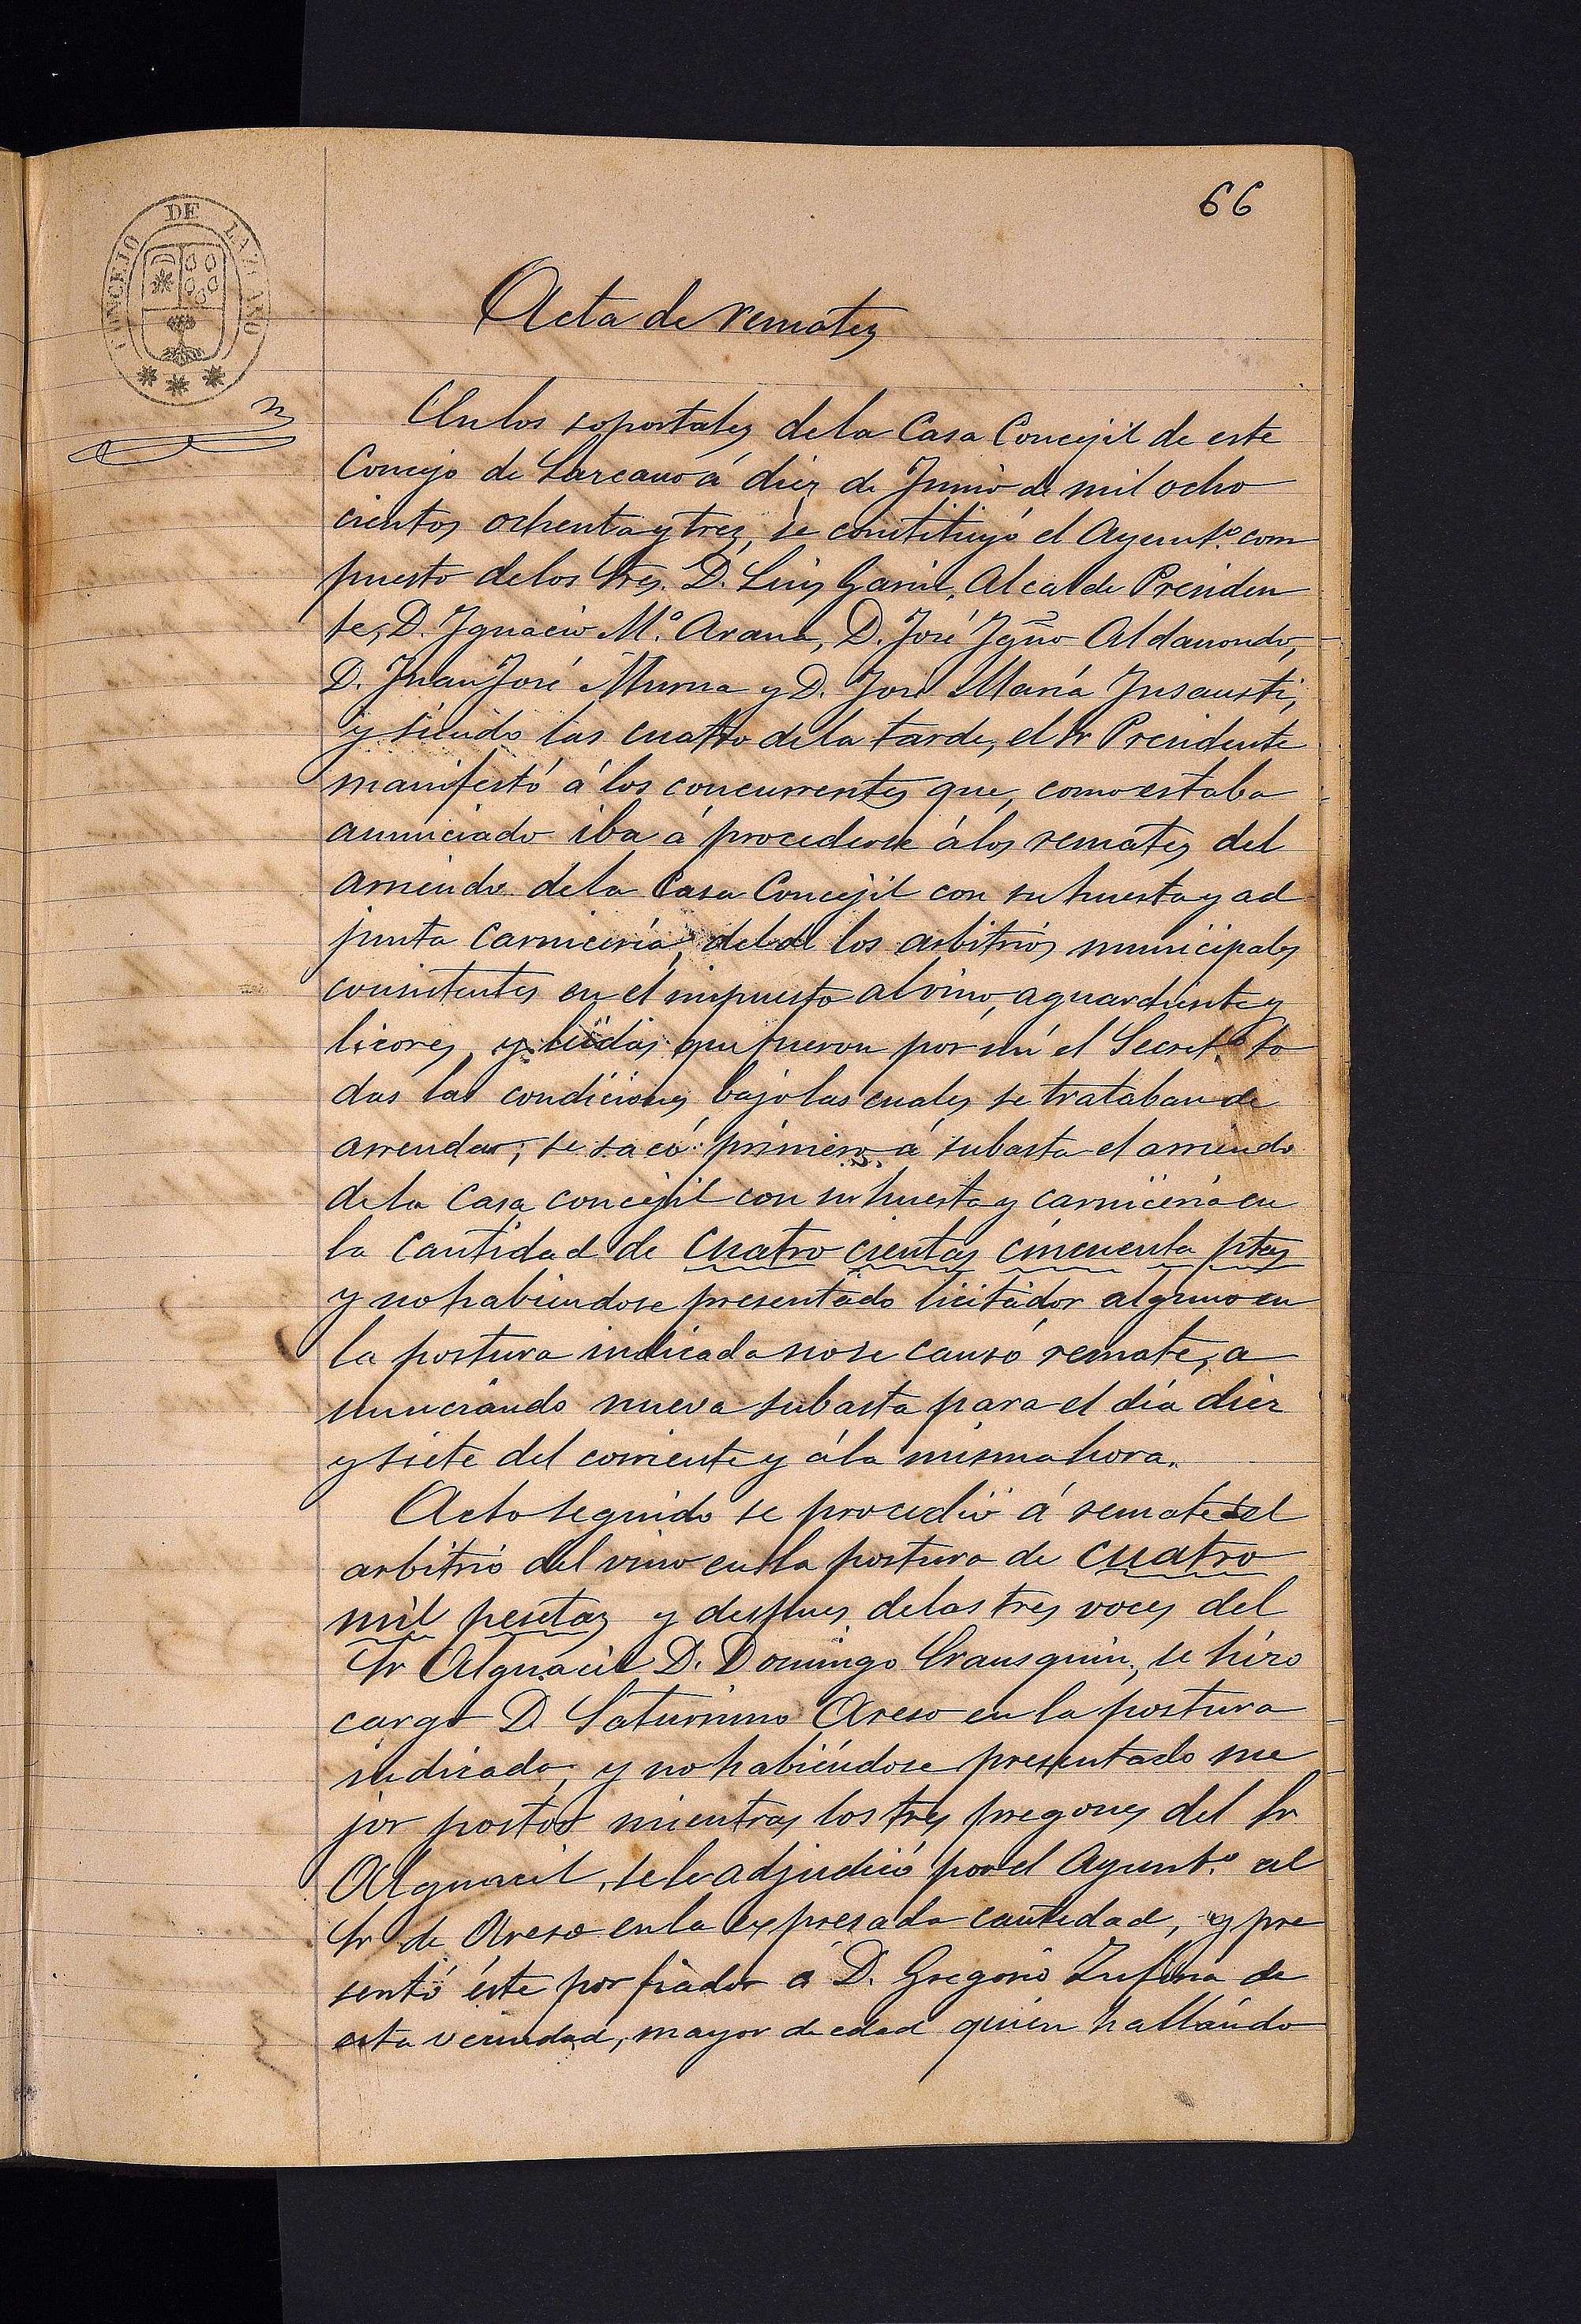 66
CONCEJO DE LAZCANO
Acta de remates
En los soportales de la Casa Concejil de este
Concejo de Lazcano á diez de Junio de mil ocho
cientos ochenta y tres, se constituyó el Ayunt.º com
puesto de los Sres. D. Luis Garin, Alcalde Presiden
te, D. Ignacio M.ª Arana, D. José Ygño Aldanondo,
D. Juan José Murua y D. José María Insausti,
y siendo las cuatro de la tarde, el Sr Presidente
manifestó á los concurrentes que, como estaba
anunciado iba á procederse á los remates del
arriendo de la Casa Concejil con su huerta y ad
junta carniceria, del de los arbitrios municipales
consistentes en el impuesto al vino, aguardiente y
licores, y leidas que fueron por mí el Secret.º to
das las condiciones bajo las cuales se trataban de
arrendar, se sacó primero á subasta el arriendo
de la Casa concejil con su huerta y carniceria en
la cantidad de cuatro cientas cincuenta ptas
y no habiendose presentado licitador alguno en
la postura indicada no se causó remate, a
nunciando nueva subasta para el día diez
y siete del corriente y á la misma hora.
Acto seguido se procedió á remate del
arbitrio del vino en la postura de cuatro
mil pesetas y despues de las tres voces del
Sr Alguacil D. Domingo Srausquin, se hizo
cargo D Saturnino Areso en la postura
indicada, y no habiéndose presentado me
jor postor mientras los tres pregones del Sr
Alguacil, se le adjudicó por el Ayunt.º al
Sr de Areso en la expresada cantidad, y pre
sentó éste por fiador á D. Gregorio Zufiria de
esta vecindad, mayor de edad quien hallándo